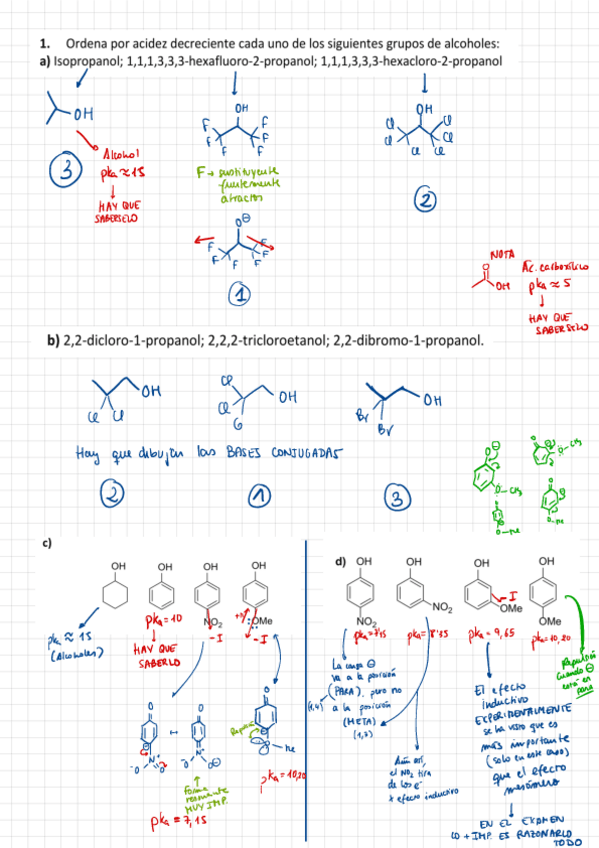 1. Ordena por acidez decreciente cada uno de los siguientes grupos de alcoholes:
a) Isopropanol; 1,1,1,3,3,3-hexafluoro-2-propanol; 1,1,1,3,3,3-hexacloro-2-propanol
OH
OH
OH
F
F
F
F
F
F
Cl
Cl
Cl
Cl
Cl
Cl
3
Alcohol
pka ≈ 15
HAY QUE
SABERSELO
F → sustituyente
fuertemente
atractor
2
O⊖
F
F
F
F
F
F
1
NOTA
O
OH
Ác. carboxílico
pka ≈ 5
HAY QUE
SABERSELO
b) 2,2-dicloro-1-propanol; 2,2,2-tricloroetanol; 2,2-dibromo-1-propanol.
OH
Cl Cl
Cl
Cl
OH
OH
Br
Br
Hay que dibujar las BASES CONJUGADAS
2
1
3
c)
OH
OH
OH
OH
NO2
OMe
-I
-I
pka ≈ 15
(Alcoholes)
pka = 10
HAY QUE
SABERLO
O
O
O
Repulsión
Me
forma
resonante
MUY IMP.
pka = 7,15
pka = 10,20
d)
OH
OH
OH
OH
NO2
NO2
-I
OMe
OMe
pka = 7'15
pka = 8'35
pka = 9,65
pka = 10,20
La carga ⊖
va a la posición
(PARA), pero no
(1,4) a la posición
(META)
(1,3)
Aún así,
el NO2 tira
de los e-
x efecto inductivo
El efecto
inductivo
EXPERIMENTALMENTE
se ha visto que es
más importante
(solo en este caso)
que el efecto
mesómero
Repulsión
cuando ⊖
está en
para
EN EL EXAMEN
LO + IMP. ES RAZONARLO
TODO